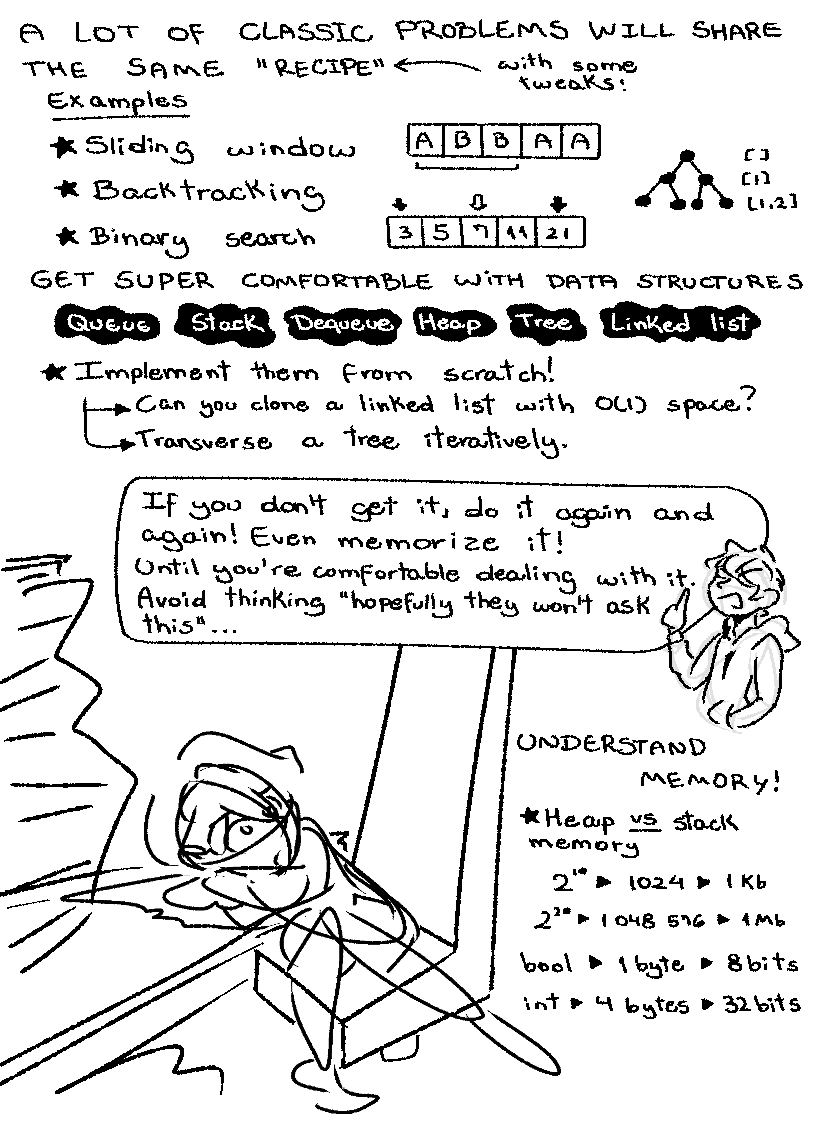 A LOT OF CLASSIC PROBLEMS WILL SHARE
THE SAME "RECIPE" with some
tweaks!
Examples
★ Sliding window
A B B A A
★ Backtracking
[]
[1]
[1,2]
★ Binary search
3 5 7 11 21
GET SUPER COMFORTABLE WITH DATA STRUCTURES
Queue Stack Dequeue Heap Tree Linked list
★ Implement them from scratch!
Can you clone a linked list with O(1) space?
Transverse a tree iteratively.
If you don't get it, do it again and
again! Even memorize it!
Until you're comfortable dealing with it.
Avoid thinking "hopefully they won't ask
this"...
UNDERSTAND
MEMORY!
★ Heap vs stack
memory
2¹⁰ ▶ 1024 ▶ 1 Kb
2²⁰ ▶ 1 048 576 ▶ 1 Mb
bool ▶ 1 byte ▶ 8 bits
int ▶ 4 bytes ▶ 32 bits